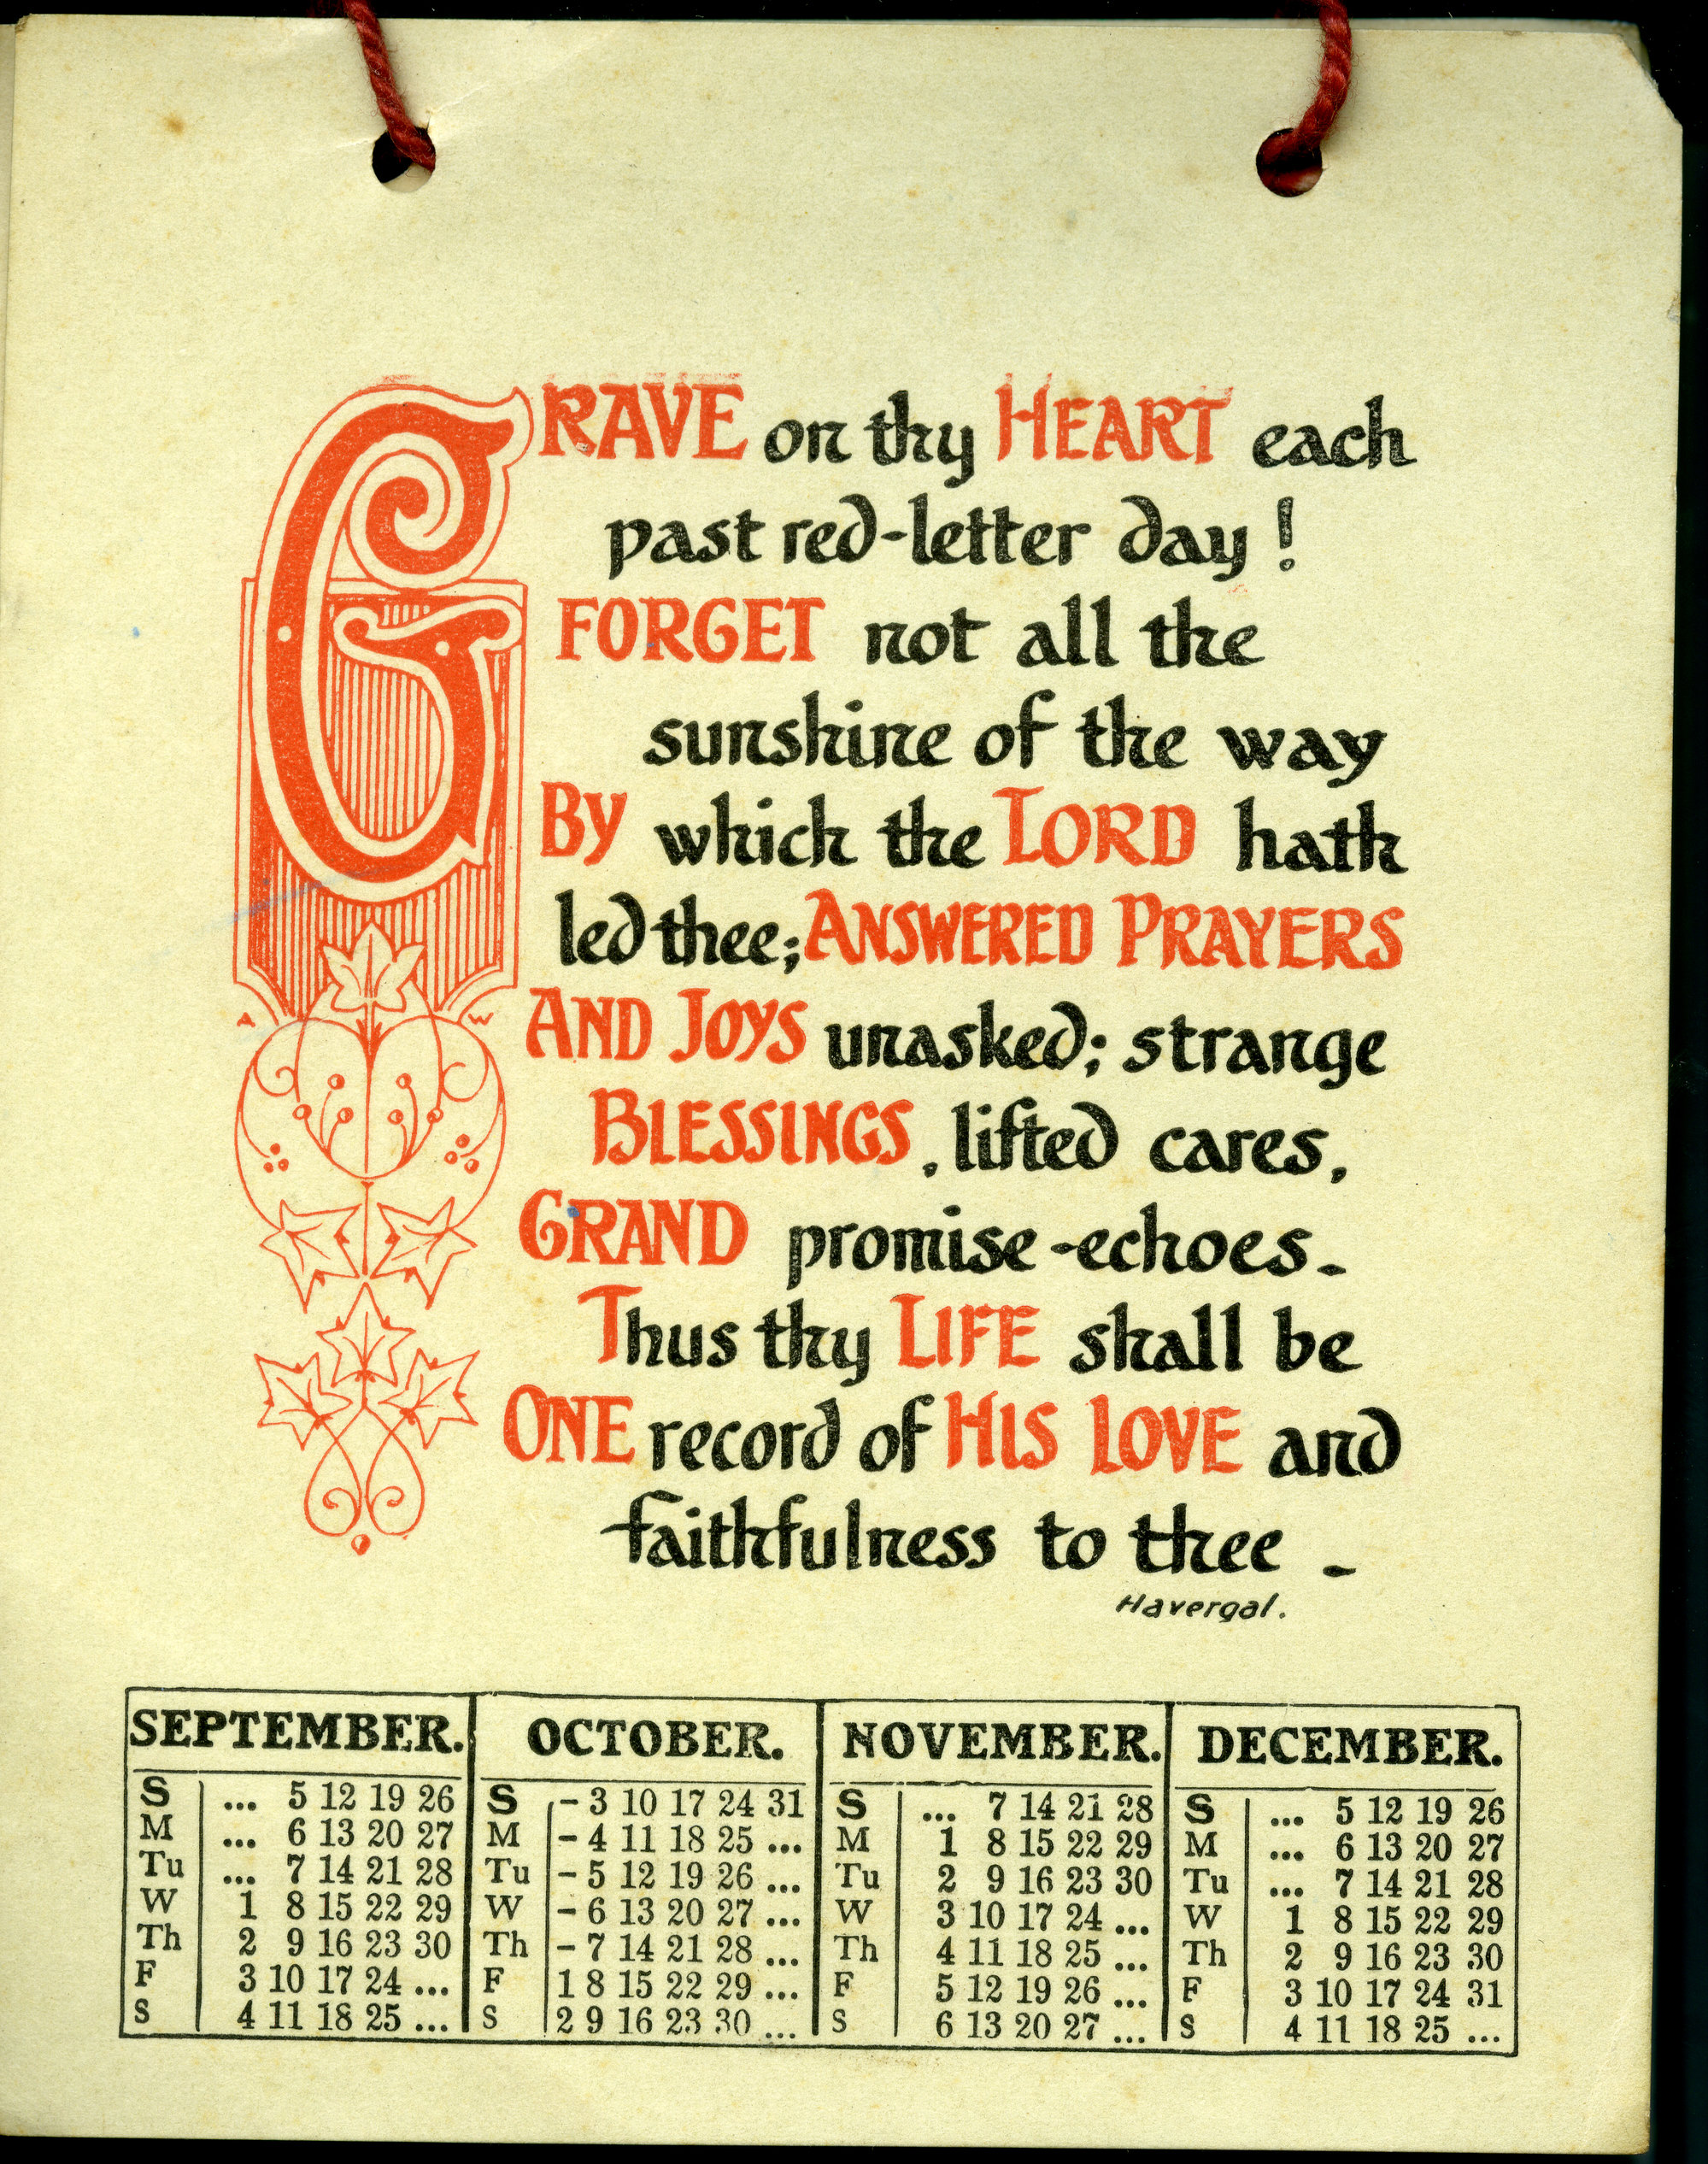 GRAVE on thy HEART each
past red-letter day !
FORGET not all the
sunshine of the way
BY which the LORD hath
led thee; ANSWERED PRAYERS
AND JOYS unasked; strange
BLESSINGS, lifted cares,
GRAND promise-echoes-
Thus thy LIFE shall be
ONE record of HIS LOVE and
faithfulness to thee -
Havergal.
A W
SEPTEMBER. OCTOBER. NOVEMBER. DECEMBER.
S ... 5 12 19 26 S - 3 10 17 24 31 S ... 7 14 21 28 S ... 5 12 19 26
M ... 6 13 20 27 M - 4 11 18 25 ... M 1 8 15 22 29 M ... 6 13 20 27
Tu ... 7 14 21 28 Tu - 5 12 19 26 ... Tu 2 9 16 23 30 Tu ... 7 14 21 28
W 1 8 15 22 29 W - 6 13 20 27 ... W 3 10 17 24 ... W 1 8 15 22 29
Th 2 9 16 23 30 Th - 7 14 21 28 ... Th 4 11 18 25 ... Th 2 9 16 23 30
F 3 10 17 24 ... F 1 8 15 22 29 ... F 5 12 19 26 ... F 3 10 17 24 31
S 4 11 18 25 ... S 2 9 16 23 30 ... S 6 13 20 27 ... S 4 11 18 25 ...